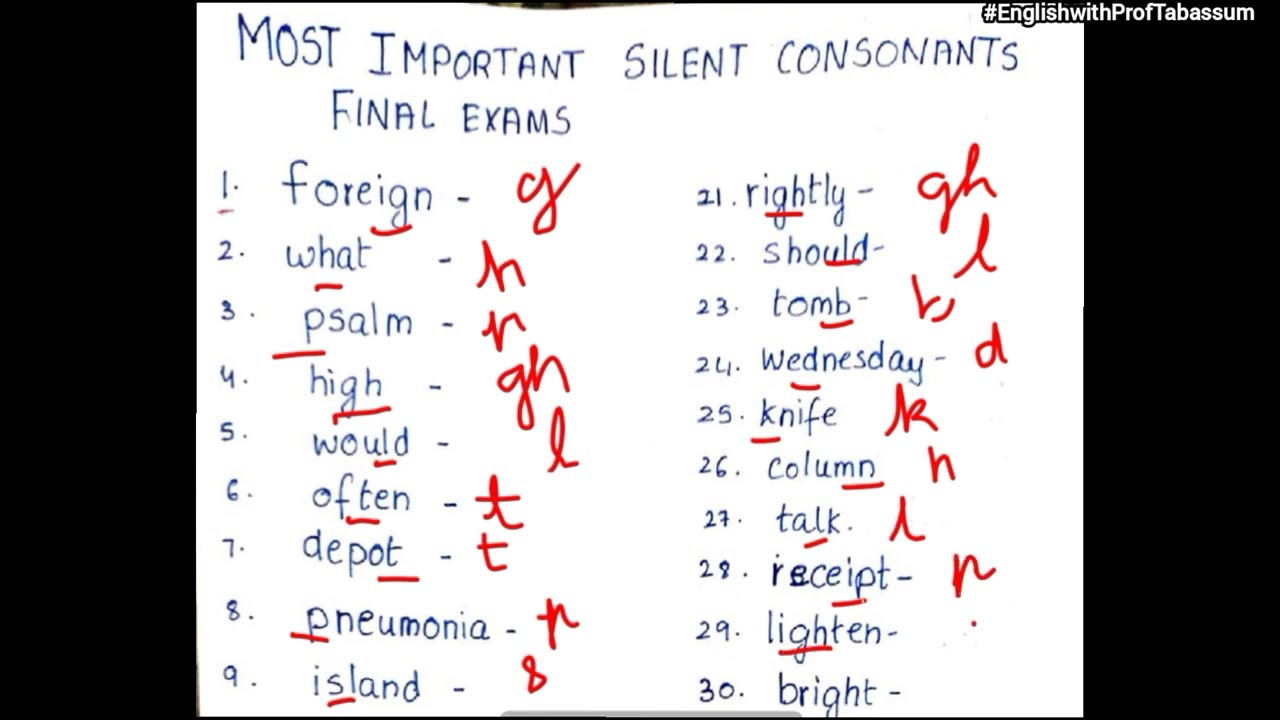 #EnglishwithProfTabassum
MOST IMPORTANT SILENT CONSONANTS
FINAL EXAMS
1. foreign - g
2. what - h
3. psalm - p
4. high - gh
5. would - l
6. often - t
7. depot - t
8. pneumonia - p
9. island - s
21. rightly - gh
22. should- l
23. tomb- b
24. Wednesday- d
25. knife k
26. column n
27. talk. l
28. receipt- p
29. lighten-
30. bright-